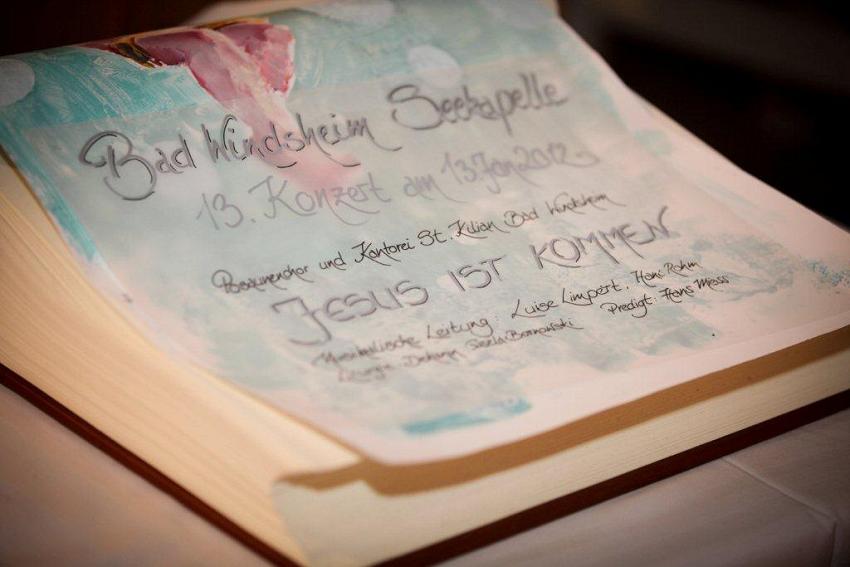 Bad Windsheim Seekapelle
13. Konzert am 13. Jan 2012
Posaunenchor und Kantorei St. Kilian Bad Windsheim
JESUS IST KOMMEN
Musikalische Leitung: Luise Limpert, Hans Rohm
Liturgie: Dekanin Gisela Bornowski Predigt: Hans